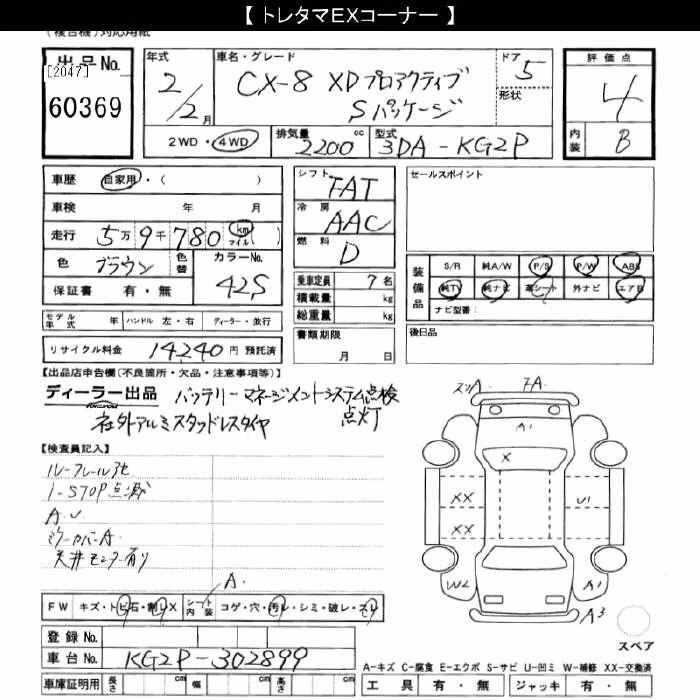 【 トレタマEXコーナー 】
(複合機)対応用紙
出品No. [2047] 60369
年式 2/2月
車名・グレード CX-8 XDプロアクティブ Sパッケージ
ドア 5
形状
評価点 4
内装 B
2WD・4WD 排気量 2200 cc 型式 3DA-KG2P
車歴 自家用・( )
車検 年 月
走行 5万9千780 km マイル ( )
色 ブラウン 色替 カラーNo. 42S
保証書 有・無
シフト FAT
冷房 AAC
燃料 D
乗車定員 7名
積載量 kg
総重量 kg
書類期限 月 日
セールスポイント
装備品 S/R 純A/W P/S P/W ABS
純TV 純ナビ 革シート 外ナビ エアB
ナビ型番:
モデル年式 年 ハンドル 左・右 ディーラー・並行
後日品
リサイクル料金 14240 円 預託済
【出品店申告欄(不良箇所・欠品・注意事項等)】
ディーラー出品 バッテリーマネージメントシステム点検
点灯
社外アルミスタッドレスタイヤ
【検査員記入】
I-STOP点滅
A.U
ミラーカバーA
天井モニター有り
A.
FW キズ・トビ石・割レX シート内装 コゲ・穴・汚レ・シミ・破レ・スレ
登録No.
車台No. KG2P-302899
車庫証明用 長さ cm 幅 cm 高さ cm
A1
X
XX
U1
XX
W2
A1
A3
スペア
A-キズ C-腐食 E-エクボ S-サビ U-凹ミ W-補修 XX-交換済
工具 有・無 ジャッキ 有・無